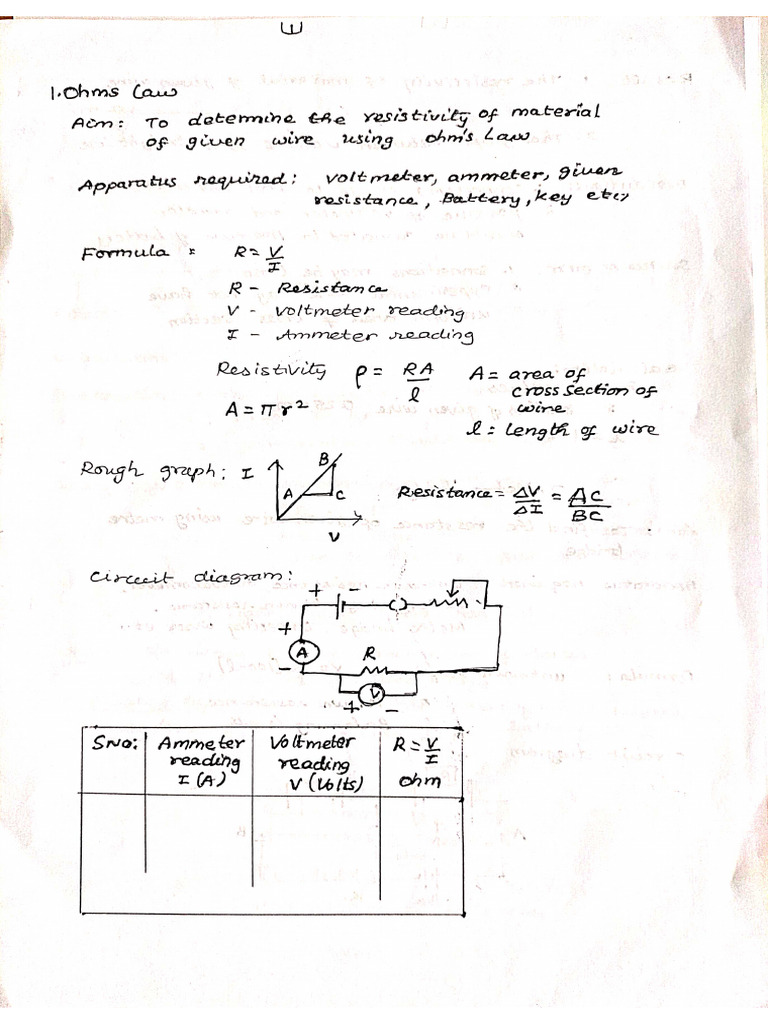 1. Ohms Law
Aim: To determine the resistivity of material
of given wire using ohm's Law
Apparatus required: voltmeter, ammeter, given
resistance, Battery, key etc,
Formula : R = V/I
R - Resistance
V - Voltmeter reading
I - Ammeter reading
Resistivity ρ = RA/l A = area of
cross section of
wire
A = πr² l = length of wire
Rough graph: I B
A C Resistance = ΔV/ΔI = AC/BC
V
Circuit diagram:
+ -
+
A R
-
V
+ -
SNo: Ammeter Voltmeter R = V/I
reading reading
I (A) V (Volts) ohm